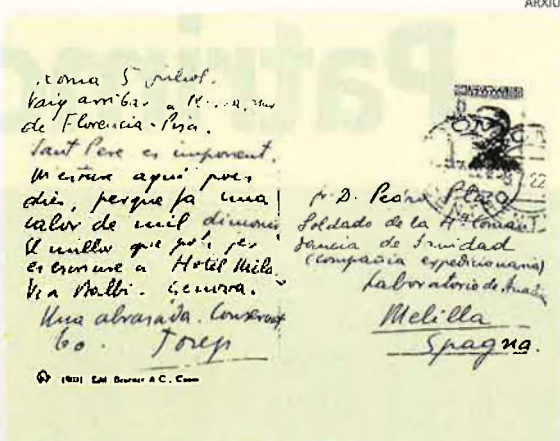 ARXIU
Roma 5 juliol.
Vaig arribar a
de Florencia-Pisa.
Sant Pere es imponent.
M'estaré aquí pocs
dies, perque fa una
calor de mil dimonis
El millor que pots fer
es escriure a Hotel Milà.
Via Balbi. Genova.
Una abrasada. Conservat
bo. Josep
Edit. A. C.
Sr. D. Pedro
Soldado de la 4ª Coman
dancia de Sanidad
(compañia expedicionaria)
Laboratorio de
Melilla
Spagna.
22